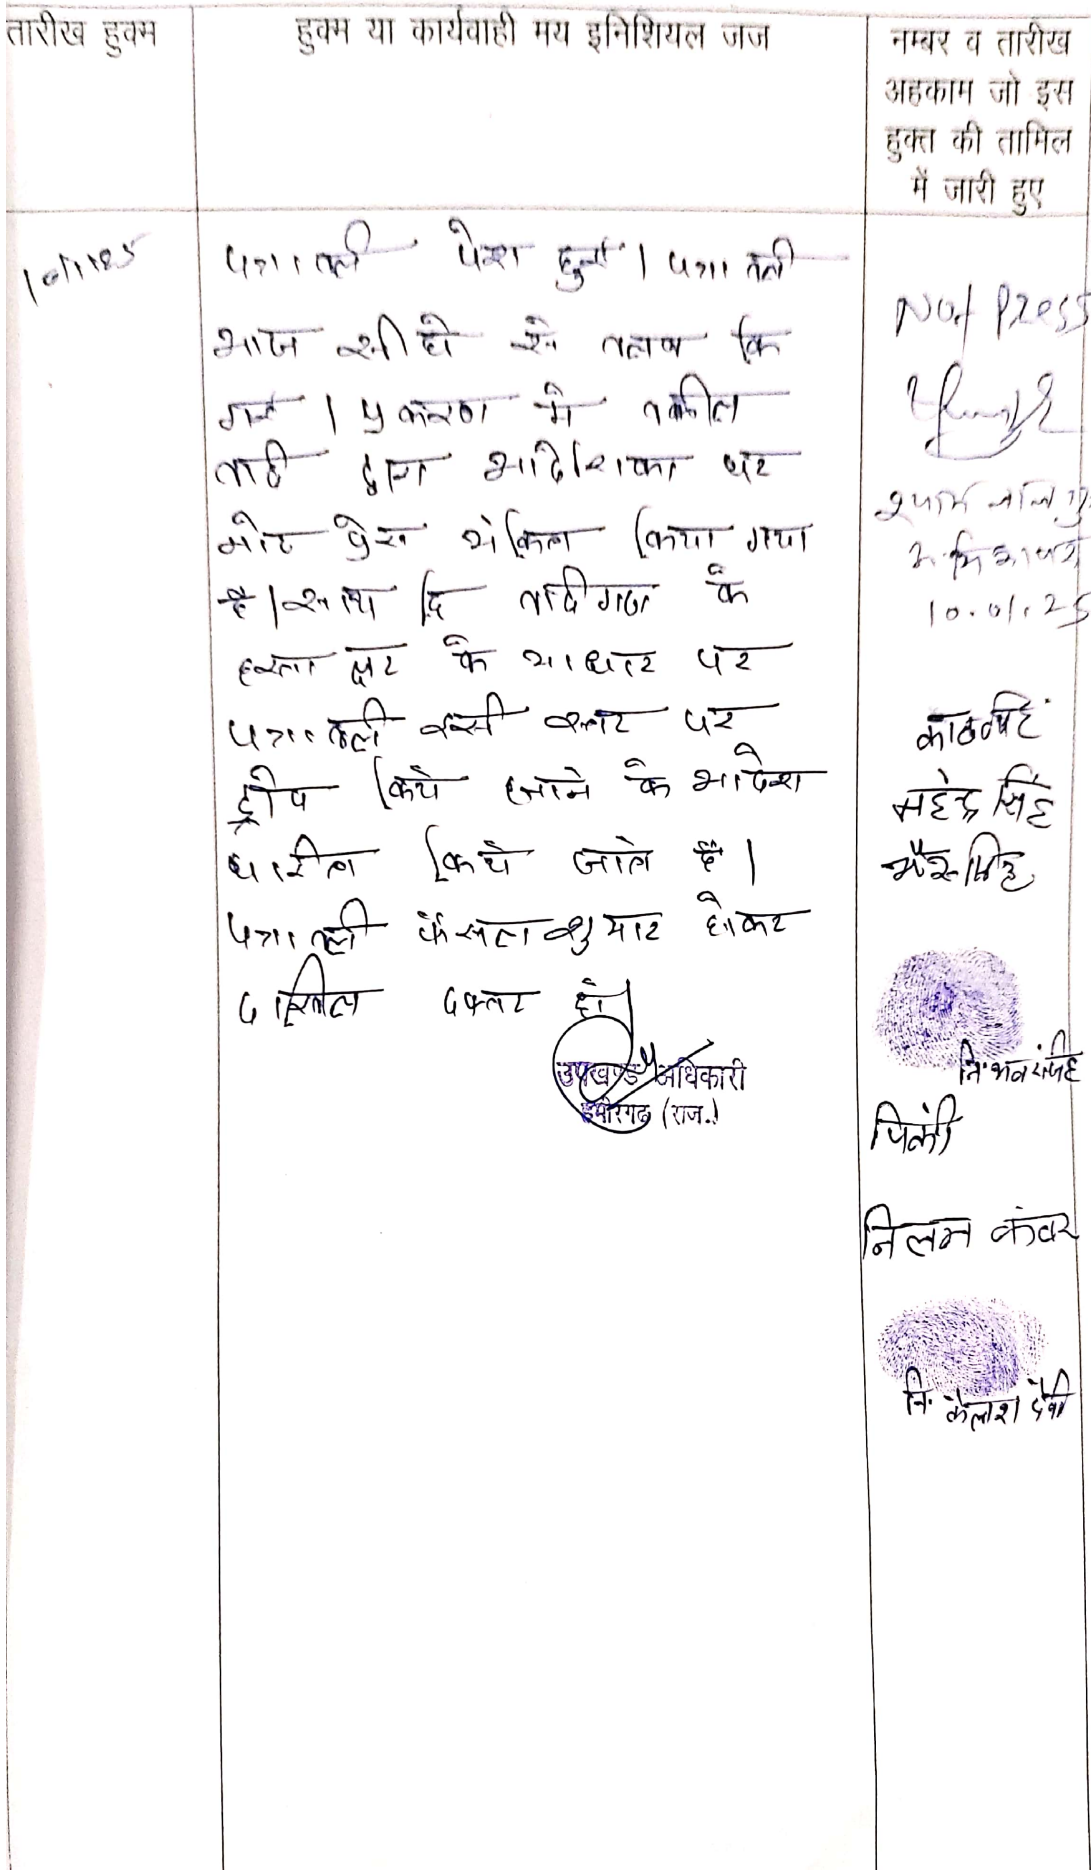 तारीख हुक्म
हुक्म या कार्यवाही मय इनिशियल जज
नम्बर व तारीख
अहकाम जो इस
हुक्त की तामिल
में जारी हुए
पत्रावली पेश हुई। पत्रावली
आज सीघे से तलब कि
गई। प्रकरण में वकील
वादी द्वारा आदेशिका पर
नोट प्रेस अंकित किया गया
है। साथ हि वादीगण के
हस्ताक्षर के आधार पर
पत्रावली इसी स्तर पर
ड्रोप किये जाने के आदेश
पारित किये जाते है।
पत्रावली फैसल शुमार होकर
दाखिल दफ्तर हो।
उपखण्ड अधिकारी
हमीरगढ (राज.)
Not Press
10.01.25
महेन्द्र सिंह
भैरूसिंह
पिंकी
निलम कंवर
नि. कैलाश देवी